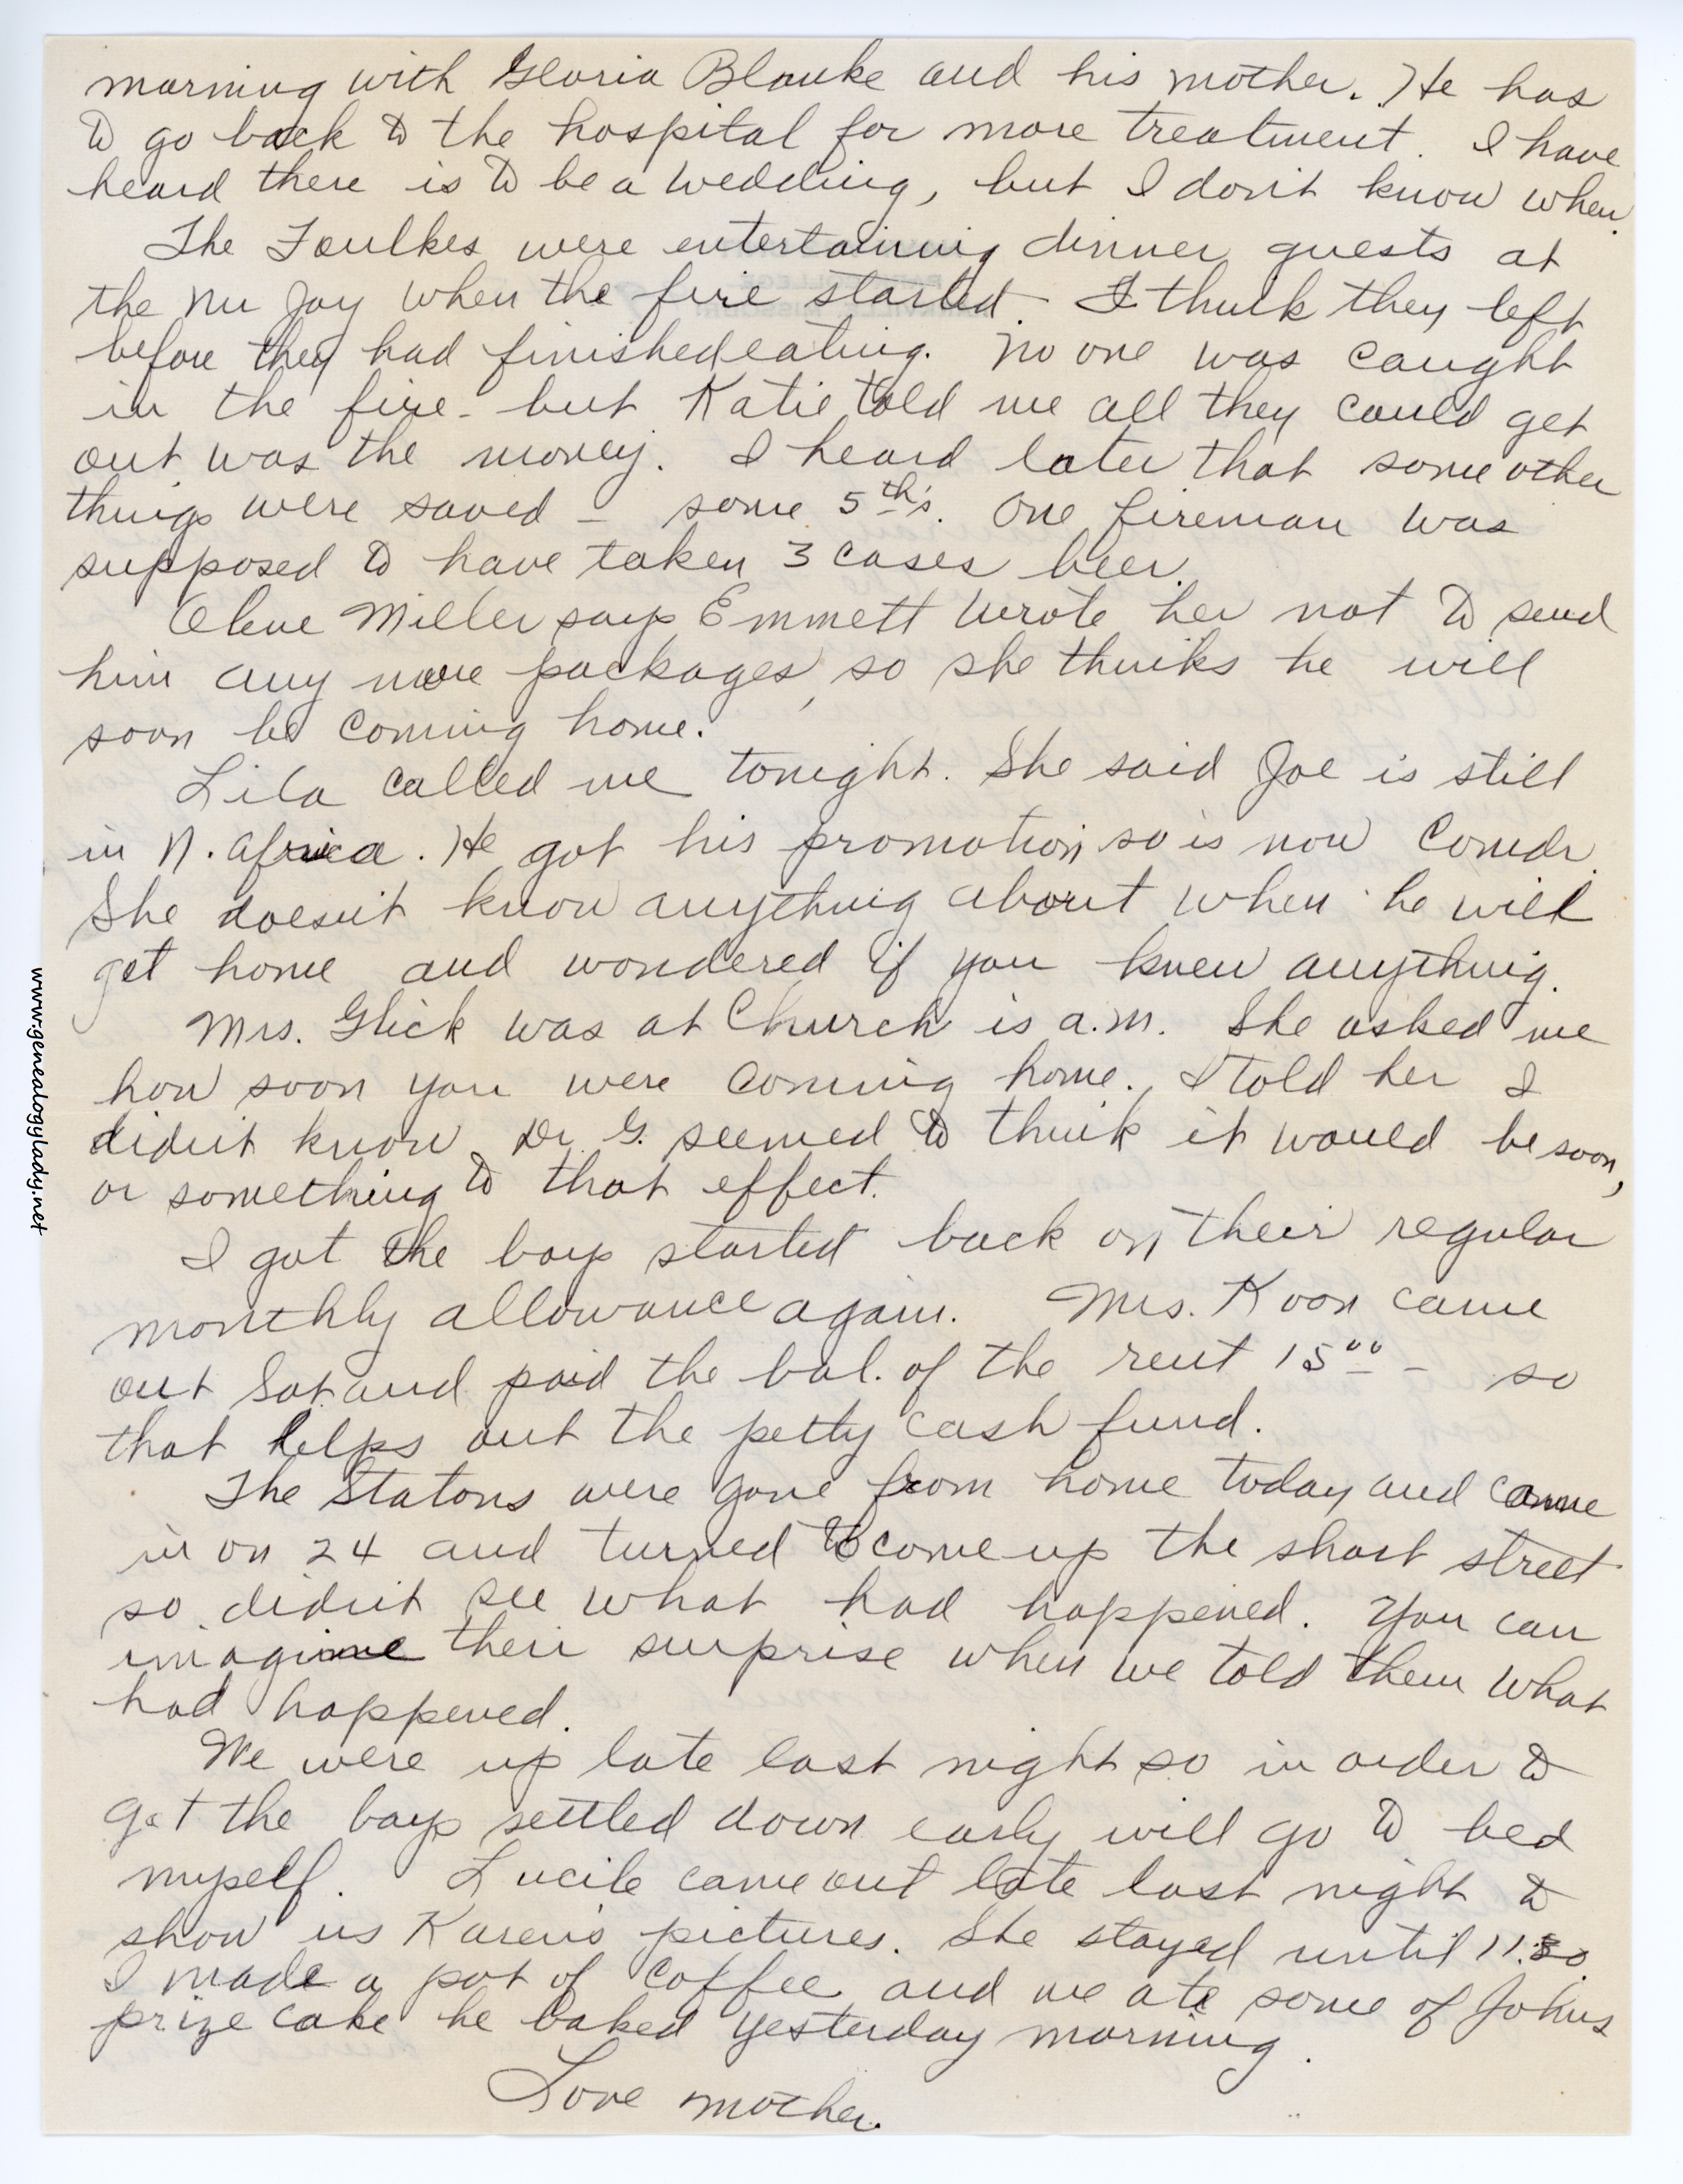 morning with Gloria Blanke and his mother. He has
to go back to the hospital for more treatment. I have
heard there is to be a wedding, but I don't know when.
The Foulkes were entertaining dinner guests at
the Nu Joy when the fire started. I think they left
before they had finished eating. No one was caught
in the fire - but Katie told me all they could get
out was the money. I heard later that some other
things were saved - some 5th's. One fireman was
supposed to have taken 3 cases beer.
Miller says Emmett wrote her not to send
him any more packages, so she thinks he will
soon be coming home.
Lila called me tonight. She said Joe is still
in N. Africa. He got his promotion so is now Comdr.
She doesn't know anything about when he will
get home and wondered if you knew anything.
Mrs. Glick was at Church is a.m. She asked me
how soon you were coming home. I told her I
didn't know. Dr. G. seemed to think it would be soon,
or something to that effect.
I got the boys started back on their regular
monthly allowance again. Mrs. Koon came
out Sat. and paid the bal. of the rent 15⁰⁰ - so
that helps out the petty cash fund.
The Statons were gone from home today and came
in on 24 and turned to come up the short street
so didn't see what had happened. You can
imagine their surprise when we told them what
had happened.
We were up late last night so in order to
get the boys settled down early will go to bed
myself. Lucile came out late last night to
show us Karen's pictures. She stayed until 11:30.
I made a pot of coffee and we ate some of Johns
prize cake he baked yesterday morning.
Love mother.
www.genealogylady.net